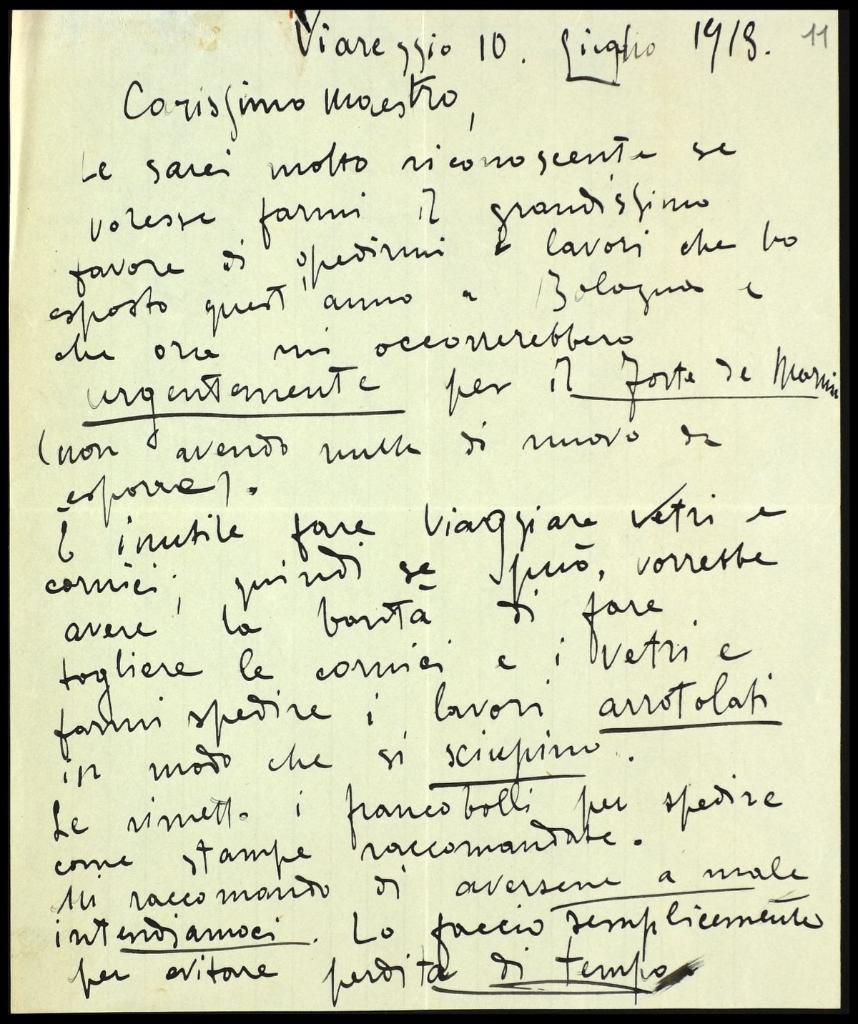 Viareggio 10. Giugno 1918. 11
Carissimo Maestro,
Le sarei molto riconoscente se
volesse farmi il grandissimo
favore di spedirmi i lavori che ho
esposto quest'anno a Bologna e
che ora mi occorrerebbero
urgentemente per il Forte de Marmi
(non avendo nulla di nuovo da
esporre).
È inutile fare viaggiare vetri e
cornici; quindi se può, vorrebbe
avere la bontà di fare
togliere le cornici e i vetri e
farmi spedire i lavori arrotolati
in modo che si sciupino.
Le rimetto i francobolli per spedire
come stampe raccomandate.
Mi raccomando di aversene a male
intendiamoci. Lo faccio semplicemente
per evitare perdita di tempo